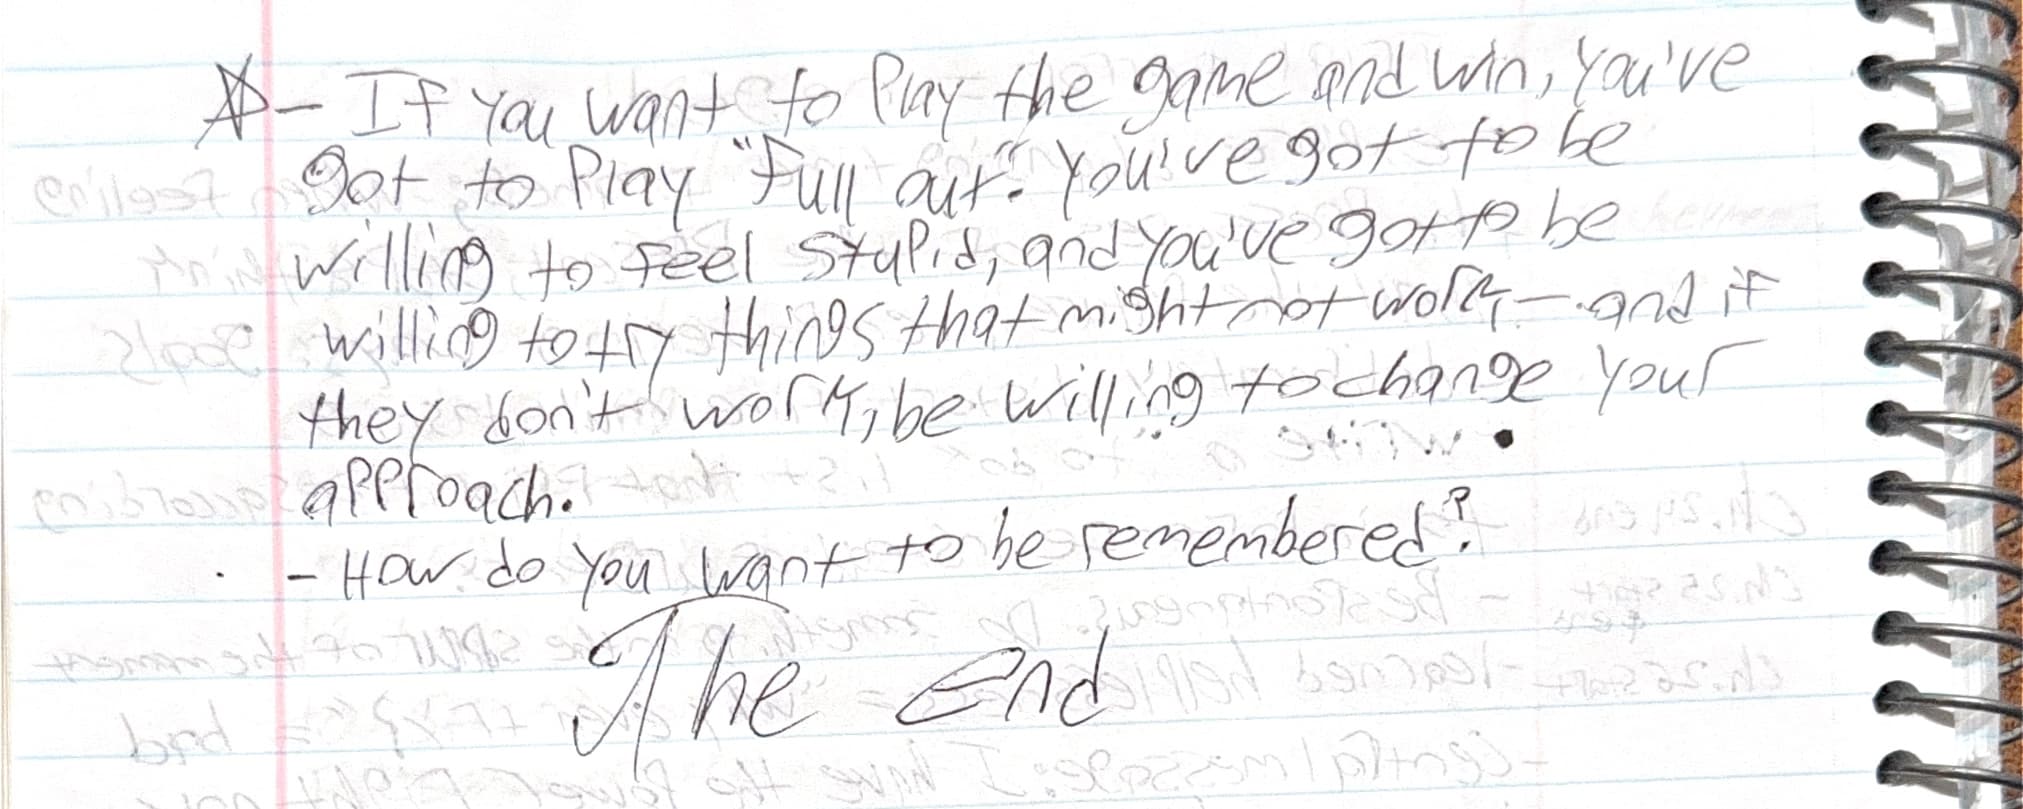 ☆- If you want to Play the game and win, you've
got to Play "full out". You've got to be
willing to feel stupid, and you've got to be
willing to try things that might not work — and if
they don't work, be willing to change your
approach.
- How do you want to be remembered?
The End